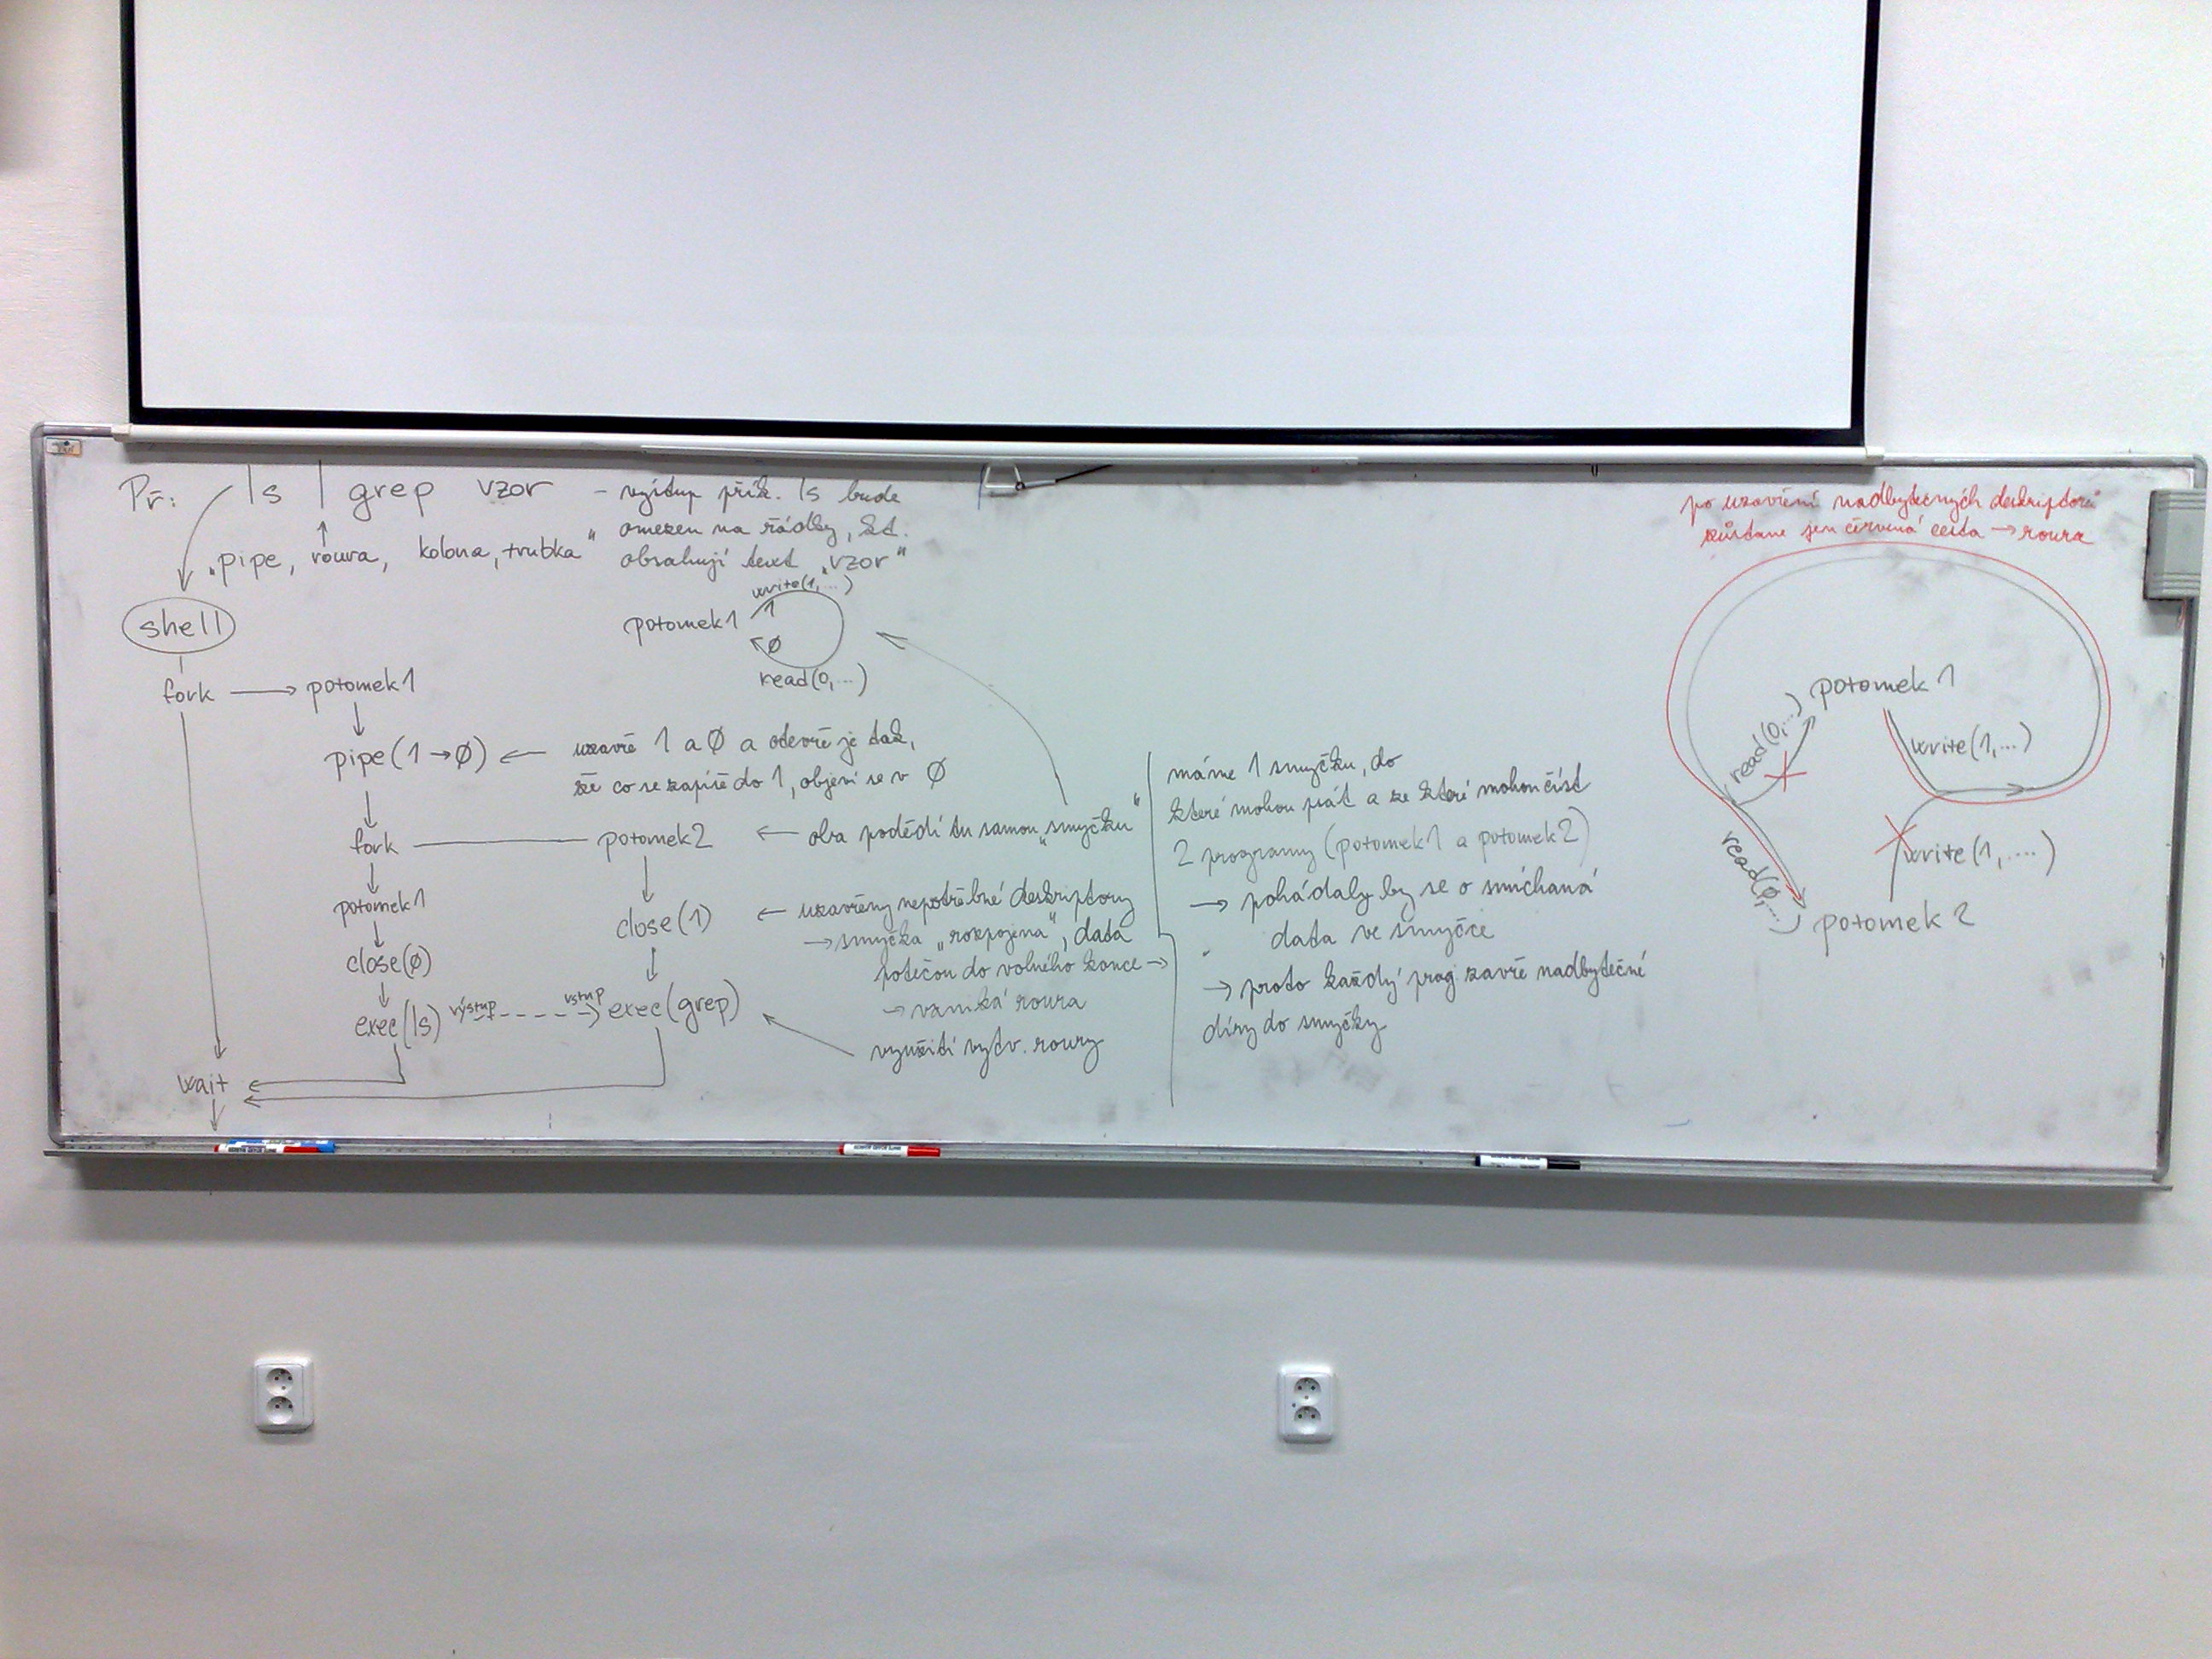 Př: ls | grep vzor
„pipe, roura, kolona, trubka“
– výstup přík. ls bude
omezen na řádky, kt.
obsahují text „vzor“
shell
fork → potomek1
write(1,...)
potomek1 1
0
read(0,...)
pipe(1→0) ← uzavře 1 a 0 a otevře je tak,
že co se zapíše do 1, objeví se v 0
fork potomek2 ← oba podědí tu samou „smyčku“
potomek1
close(0)
exec(ls) výstup vstup exec(grep)
close(1) ← uzavřeny nepotřebné deskriptory
→ smyčka „rozpojena“, data
potečou do volného konce →
→ vzniká roura
využití vytv. roury
wait
máme 1 smyčku, do
které mohou psát a ze které mohou číst
2 programy (potomek1 a potomek2)
→ pohádaly by se o smíchaná
data ve smyčce
→ proto každý prog. zavře nadbytečné
díry do smyčky
po uzavření nadbytečných deskriptorů
zůstane jen červená cesta → roura
potomek 1
read(0,...)
write(1,...)
read(0,...)
write(1,....)
potomek 2